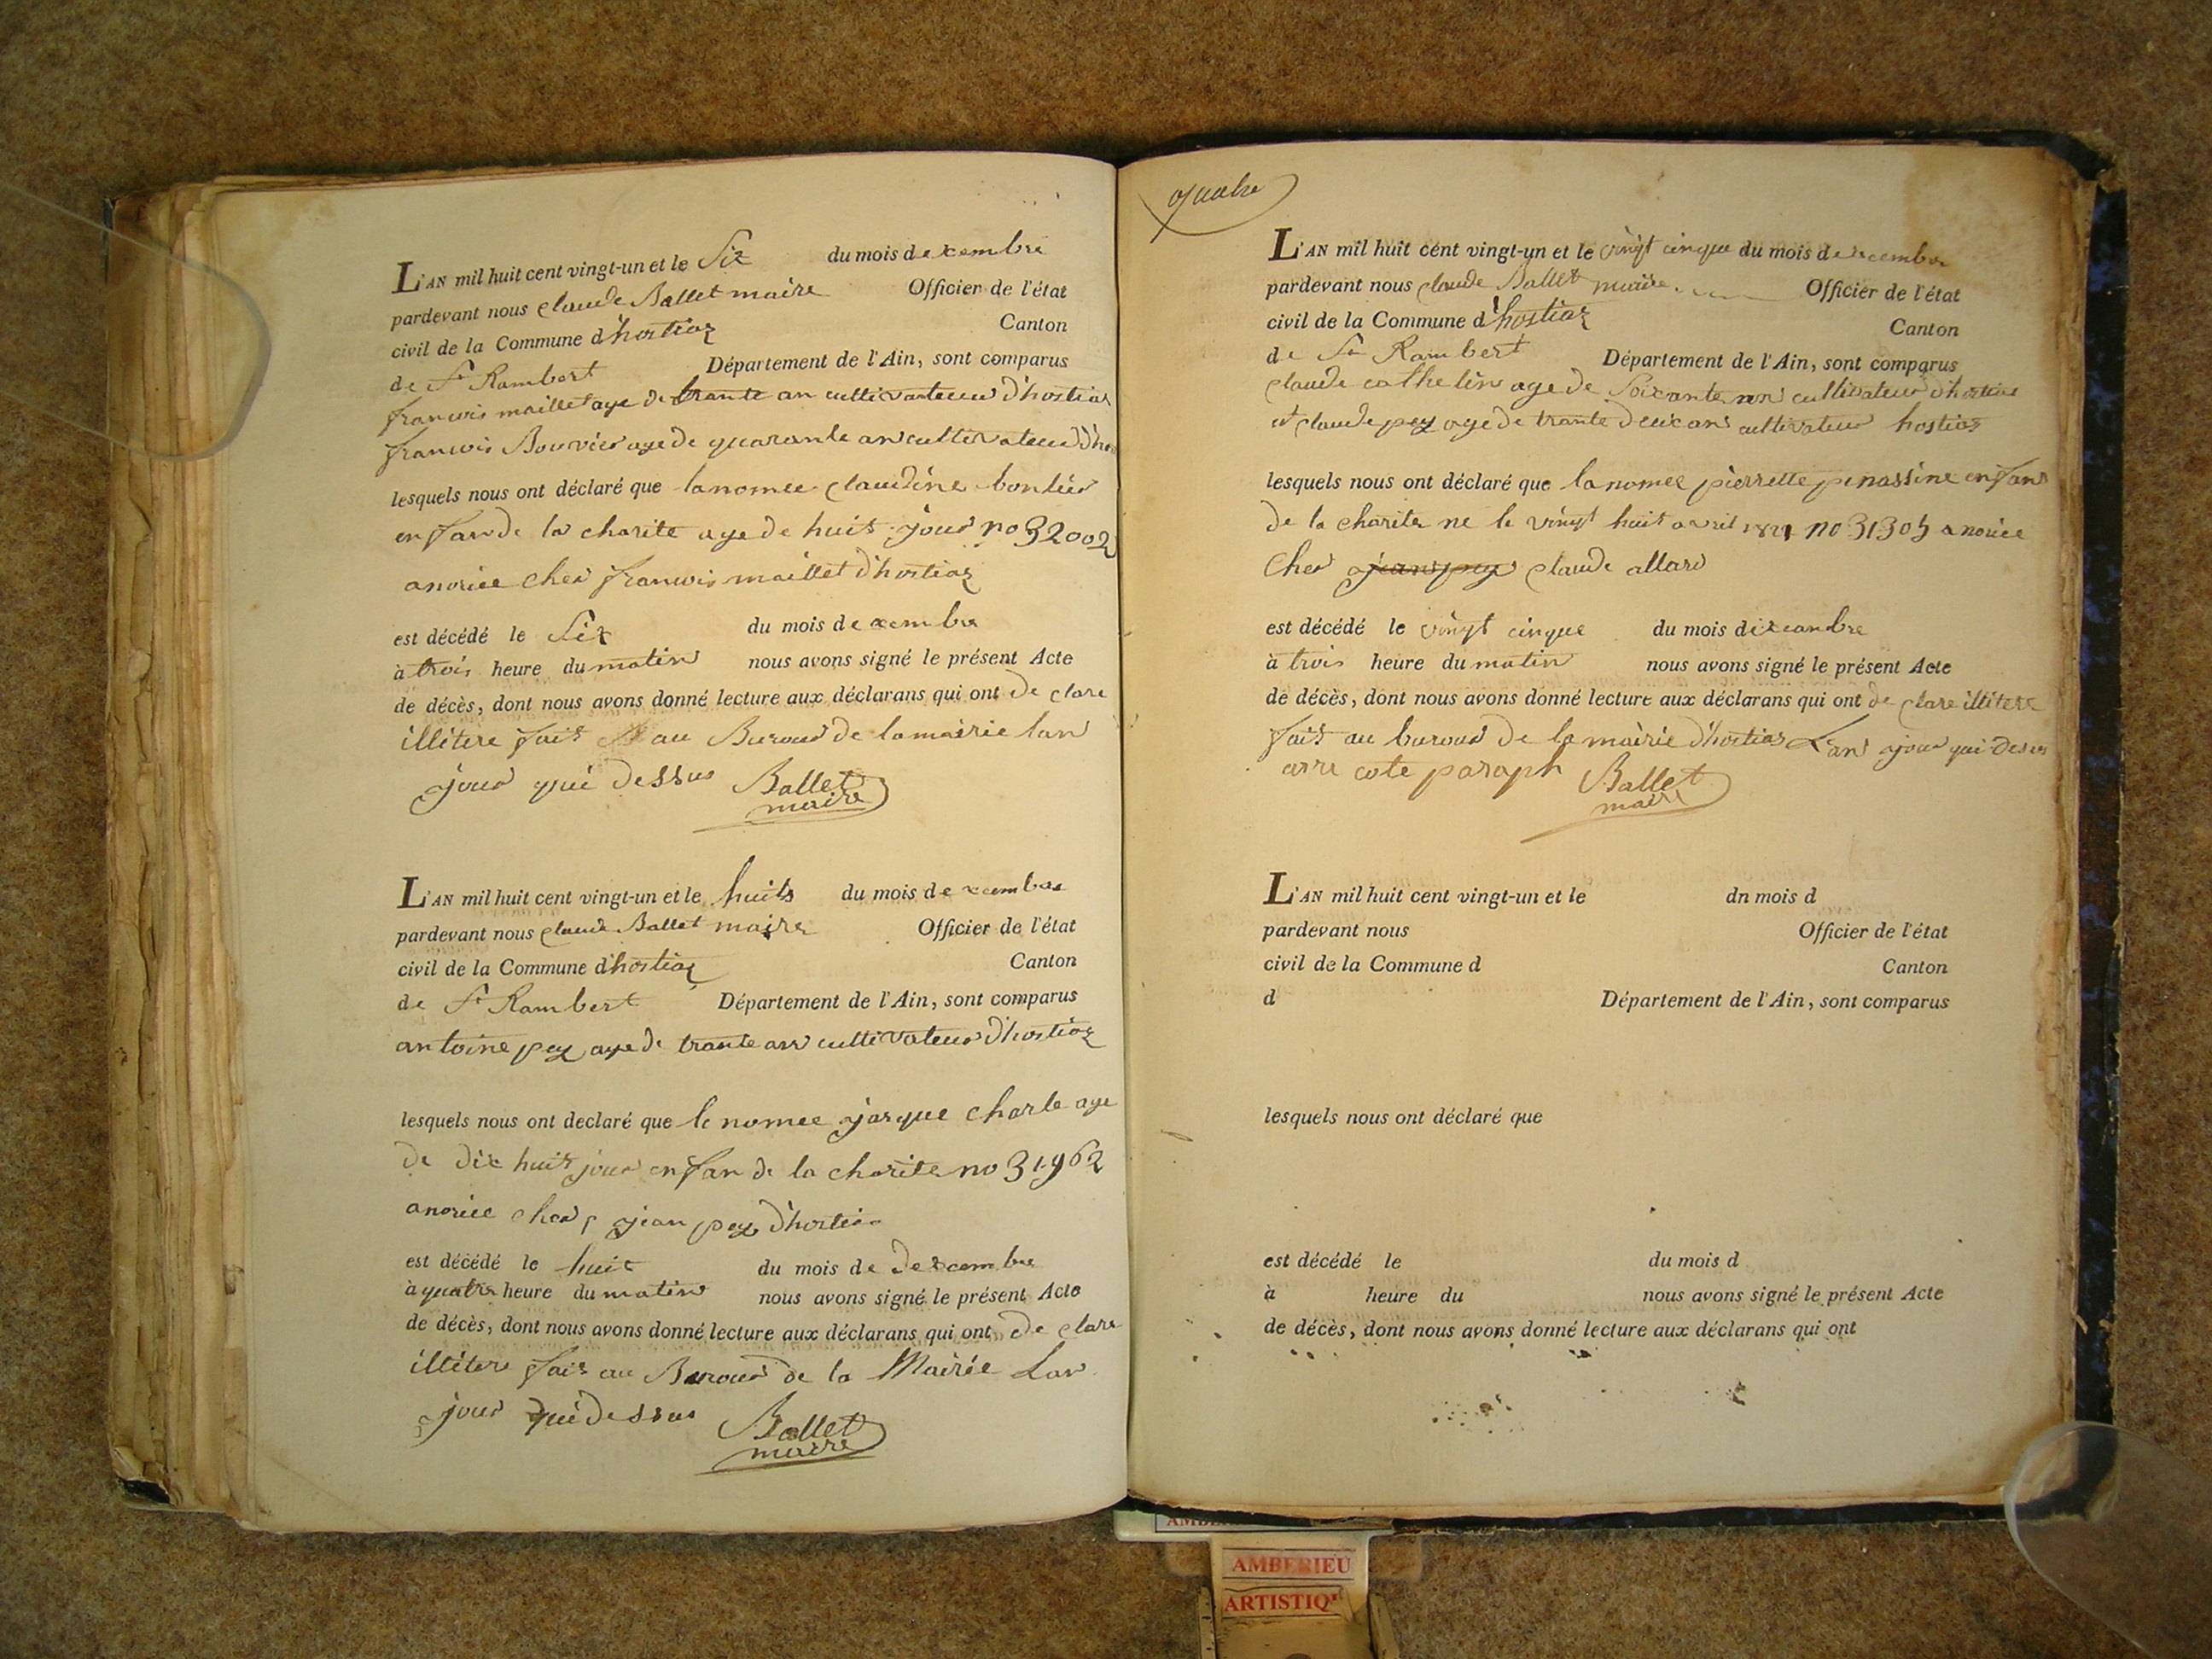 L'AN mil huit cent vingt-un et le Six du mois dexembre
pardevant nous claude Ballet maire Officier de l'état
civil de la Commune d'hostiaz Canton
de St Rambert Département de l'Ain, sont comparus
francois maillet aye de trante an cultivateur d'hostiaz
francois Bouvier aye de quarante an cultivateur
lesquels nous ont déclaré que la nomee claudine
enfan de la charite aye de huit jour no 32002
anoriee cher francois maillet d'hostiaz
est décédé le Six du mois dexembre
à trois heure du matin nous avons signé le présent Acte
de décès, dont nous avons donné lecture aux déclarans qui ont de clare
illitere fait au Buroud de la mairie lan
jour qui dessus Ballet
maire
L'AN mil huit cent vingt-un et le huits du mois dexembre
pardevant nous claude Ballet maire Officier de l'état
civil de la Commune d'hostiaz Canton
de St Rambert Département de l'Ain, sont comparus
antoine pey aye de trante an cultivateur d'hostiaz
lesquels nous ont declaré que le nomee jarque charle aye
de dix huit jour enfan de la charite no 31962
anoriee cher jean pey d'hostia
est décédé le huit du mois de dexcembre
à quatre heure du matin nous avons signé le présent Acte
de décès, dont nous avons donné lecture aux déclarans qui ont de clare
illitere fait au Buroud de la Mairie Lan
jour qui dessus Ballet
maire
quatre
L'AN mil huit cent vingt-un et le vingt cinque du mois dexcembre
pardevant nous claude Ballet maire Officier de l'état
civil de la Commune d'hostiaz Canton
de St Rambert Département de l'Ain, sont comparus
claude cathelin age de Soixante an cultivateur d'hostiaz
et claude pey age de trante deux ans cultivateur hostiaz
lesquels nous ont déclaré que la nomee pierrette penassine enfans
de la charite ne le vingt huit avril 1821 no 31305 anoriee
cher jean pey claude allard
est décédé le vingt cinque du mois dixcambre
à trois heure du matin nous avons signé le présent Acte
de décès, dont nous avons donné lecture aux déclarans qui ont de clare illitere
fait au buroud de la mairie d'hostias Lan jour qui desus
arre cote paraph Ballet
maire
L'AN mil huit cent vingt-un et le dn mois d
pardevant nous Officier de l'état
civil de la Commune d Canton
d Département de l'Ain, sont comparus
lesquels nous ont déclaré que
est décédé le du mois d
à heure du nous avons signé le présent Acte
de décès, dont nous avons donné lecture aux déclarans qui ont
AMBERIEU
ARTISTIQ